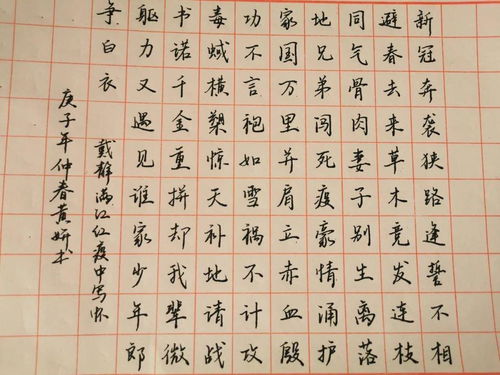 新冠奔袭狭路逢誓不相
避春去来草木竞发连枝
同气骨肉妻子别生离落
地兄弟闯死疫豪情涌护
家国万里并肩立赤血殷
功不言袍如雪祸不计攻
毒蜮横槊惊天补地请战
书诺千金重拼却我辈微
躯力又遇见谁家少年郎
争白衣
戴静满江红疫中写怀
庚子年仲春黄妍书